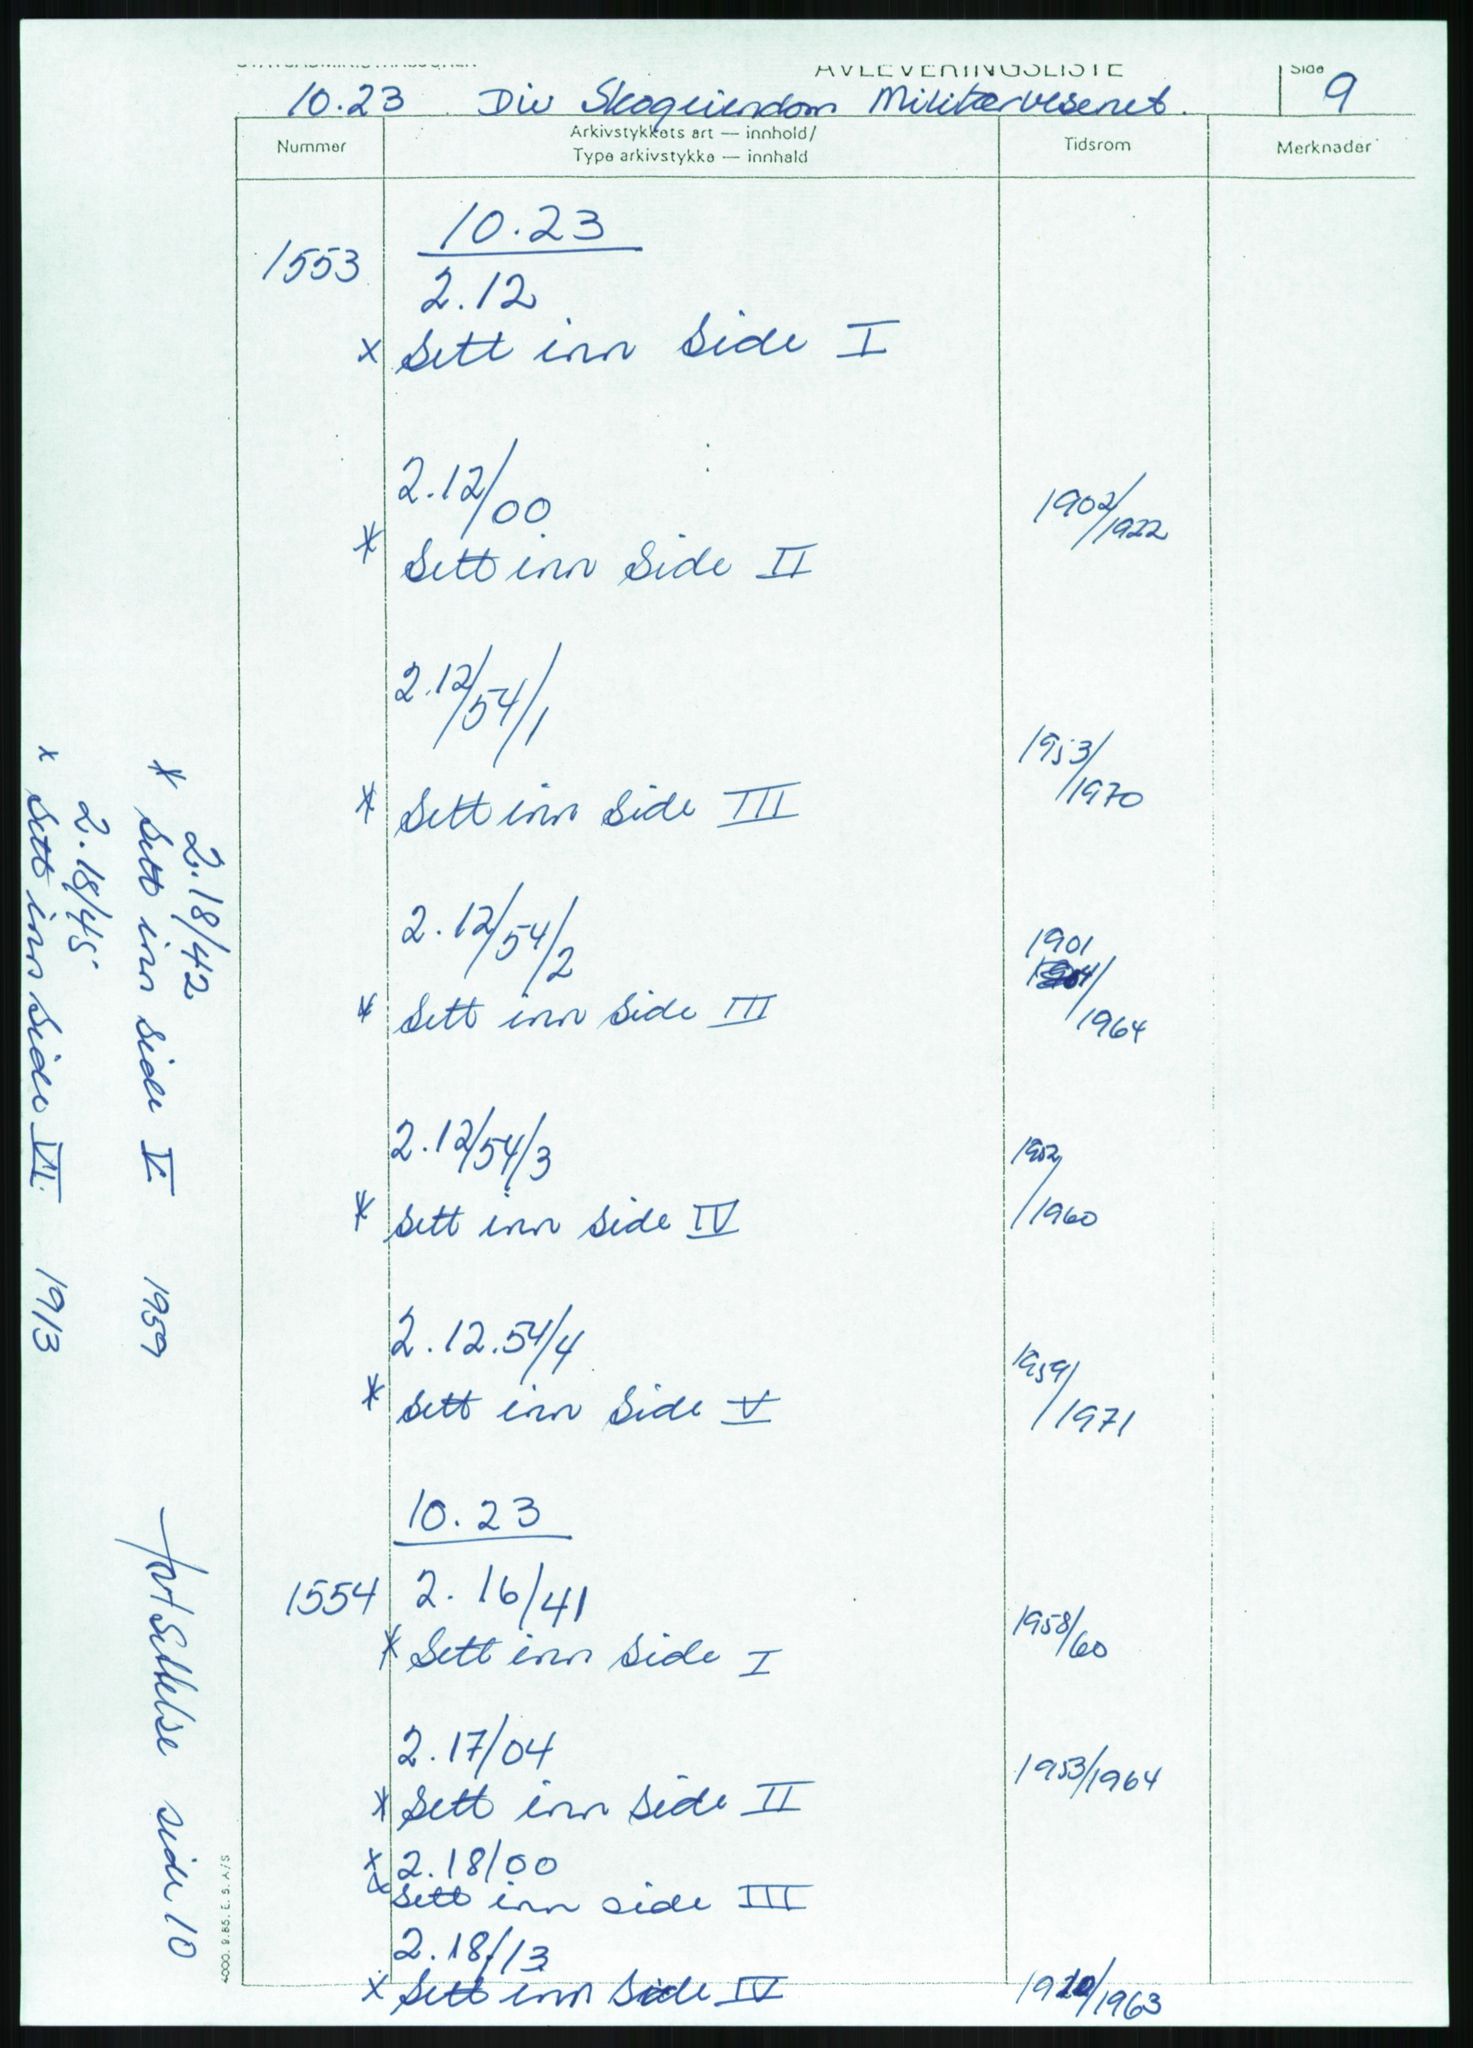 AVLEVERINGSLISTE
Side
9
10.23 Div Skogeiendom Militærvesenet.
Nummer
Arkivstykkets art — innhold/
Type arkivstykke — innhald
Tidsrom
Merknader
10.23
1553
2.12
x Sett inn Side I
2.12/00
1902/1922
* Sett inn Side II
2.12/54/1
1953/1970
* Sett inn Side III
2.12/54/2
1901
/1964
* Sett inn Side III
2.12/54/3
1952/1960
* Sett inn Side IV
2.12.54/4
1959/1971
* Sett inn Side V
10.23
1554 2.16/41
1958/60
* Sett inn Side I
2.17/04
1953/1964
* Sett inn Side II
x 2.18/00
x Sett inn side III
2.18/13
x Sett inn Side IV
/1963
2.18/42
* Sett inn side V 1959
2.18/45
x Sett inn side VI. 1913
fortsettelse side 10
4000. 9.85. E. S. A/S